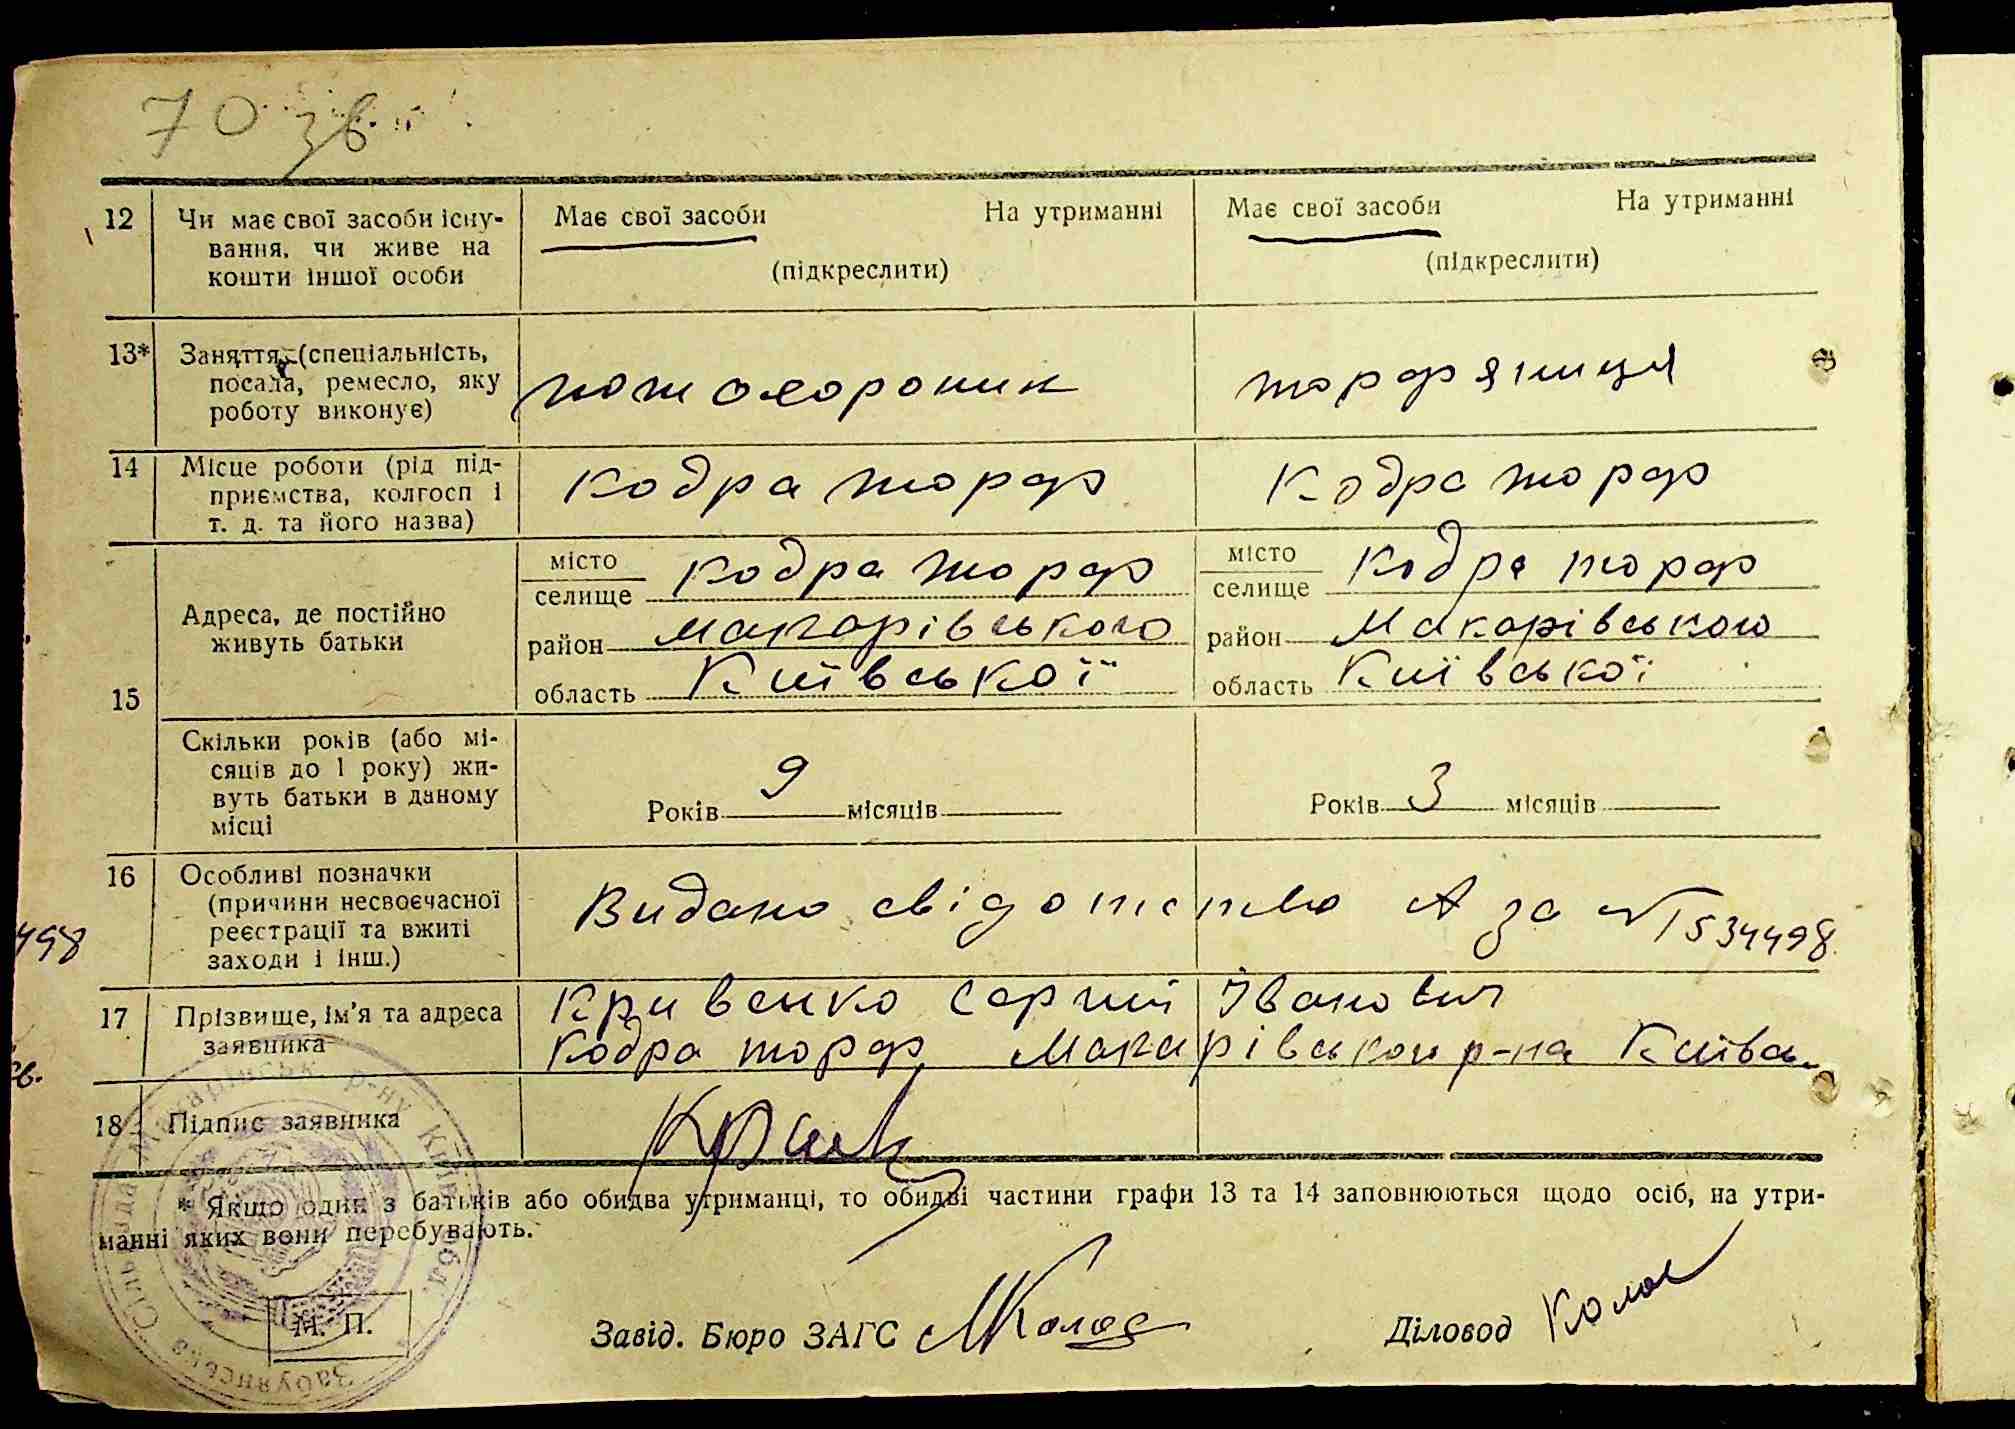 70 зв
12 Чи має свої засоби існу- Має свої засоби На утриманні Має свої засоби На утриманні
вання, чи живе на
кошти іншої особи (підкреслити) (підкреслити)
13* Заняття (спеціальність,
посада, ремесло, яку пожохороник торфяниця
роботу виконує)
14 Місце роботи (рід під-
приємства, колгосп і Кодра торф Кодра торф
т. д. та його назва)
15 Адреса, де постійно
живуть батьки
місто селище Кодра торф місто селище Кодра торф
район Макарівського район Макарівського
область Київської область Київської
Скільки років (або мі-
сяців до 1 року) жи-
вуть батьки в даному Років 9 місяців Років 3 місяців
місці
16 Особливі позначки
(причини несвоєчасної Видано свідотство А за № 534498
реєстрації та вжиті
заходи і інш.)
498
17 Прізвище, ім'я та адреса Кривенко Сергій Іванович
заявника Кодра торф Макарівськои р-на Київсь.
св.
18 Підпис заявника
* Якщо один з батьків або обидва утриманці, то обидві частини графи 13 та 14 заповнюються щодо осіб, на утри-
манні яких вони перебувають.
М. П. Завід. Бюро ЗАГС Діловод
Забуянська Сільрада Макарівськ. р-ну Київ. обл.